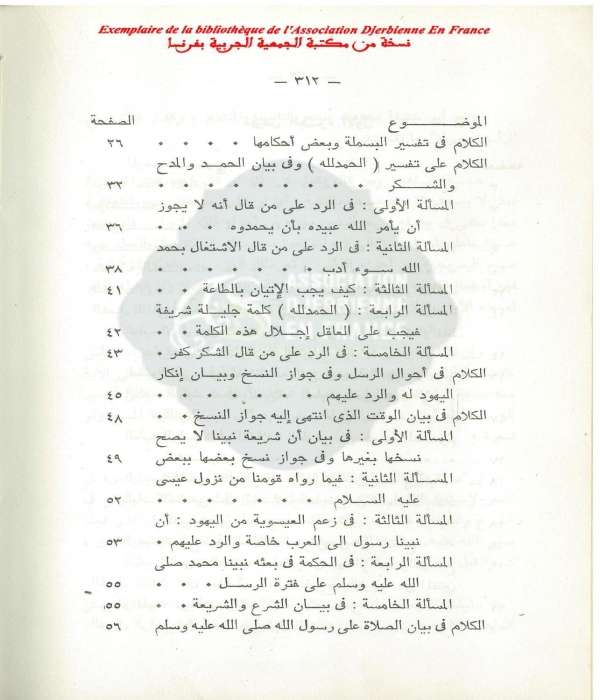 Exemplaire de la bibliothèque de l'Association Djerbienne En France
نسخة من مكتبة الجمعية الجربية بفرنسا
— ٣١٢ —
الموضـــــــوع الصفحة
الكلام فى تفسير البسملة وبعض أحكامها ٢٦
الكلام على تفسير ( الحمدلله ) وفى بيان الحمـــد والمدح
والشـــكر ٣٢
المسألة الأولى : فى الرد على من قال أنه لا يجوز
أن يأمر الله عبيده بأن يحمدوه ٣٦
المسألة الثانية : فى الرد على من قال الاشتغال بحمد
الله ســوء أدب ٣٨
المسألة الثالثة : كيف يجب الإتيان بالطاعة ٤١
المسألة الرابعة : ( الحمدلله ) كلمة جليلة شريفة
فيجب على العاقل إجلال هذه الكلمة ٤٢
المسألة الخامسة : فى الرد على من قال الشكر كفر ٤٣
الكلام فى أحوال الرسل وفى جواز النسخ وبيان إنكار
اليهود له والرد عليهم ٤٥
الكلام فى بيان الوقت الذى انتهى إليه جواز النسخ ٤٨
المسألة الأولى : فى بيان أن شريعة نبينا لا يصح
نسخها بغيرها وفى جواز نسخ بعضها ببعض ٤٩
المسألة الثانية : فيما رواه قومنا من نزول عيسى
عليه الســلام ٥٢
المسألة الثالثة : فى زعم العيسوية من اليهود : أن
نبينا رسول الى العرب خاصة والرد عليهم ٥٣
المسألة الرابعة : فى الحكمة فى بعثه نبينا محمد صلى
الله عليه وسلم على فترة الرسـل ٥٥
المسألة الخامسة : فى بيــان الشرع والشريعة ٥٥
الكلام فى بيان الصلاة على رسول الله صلى الله عليه وسلم ٥٦
ASSOCIATION
DJERBIENNE
EN FRANCE